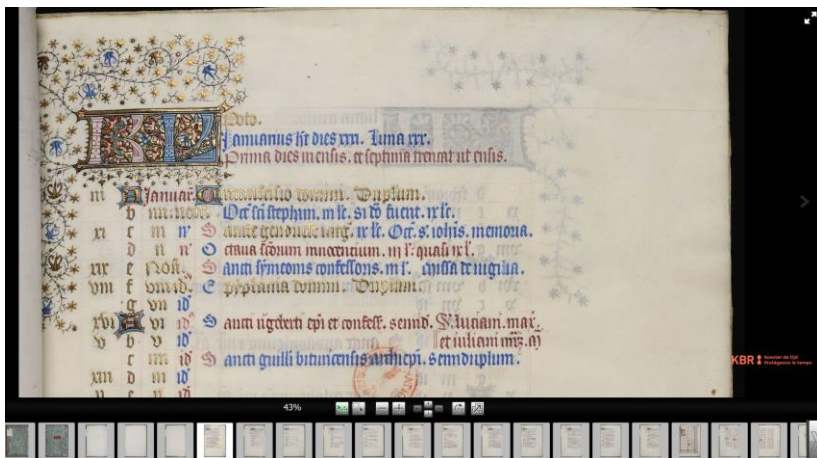 KL
Januarius ht dies xxxi. Luna xxx.
Prima dies mensis. et septima truncat ut ensis.
iii A Januar. Circoncisio domini. Duplum.
b iiii. non. Oct. sci stephani. iii lc. si do fuerit. ix lc.
xi c iii n' Sancte genovefe virg. ix lc. Oct. s. iohis. memoria.
d ii n' Octava scorum innocentium. iii l' quasi ix l.
xix e Non. Sancti symeonis confessoris. iii l. missa de vigilia.
viii f viii id' Epyphania domini. Duplum.
g vii id'
xvi A vi id' Sancti epi et confess. semid. S. luciani. mar.
v b v id' et iuliani mr.
c iiii id' Sancti guilli bituricensis archiepi. semiduplum.
xiii d iii id'
KBR
43%